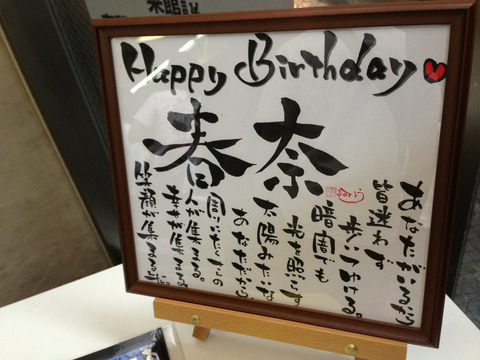 Happy Birthday
春奈
あなたがいるから
皆迷わず
歩いてゆける。
暗闇でも
光を照らす
太陽みたいな
あなただから
周りにたくさんの
人が集まる。
幸せが集まる。
笑顔が集まる。